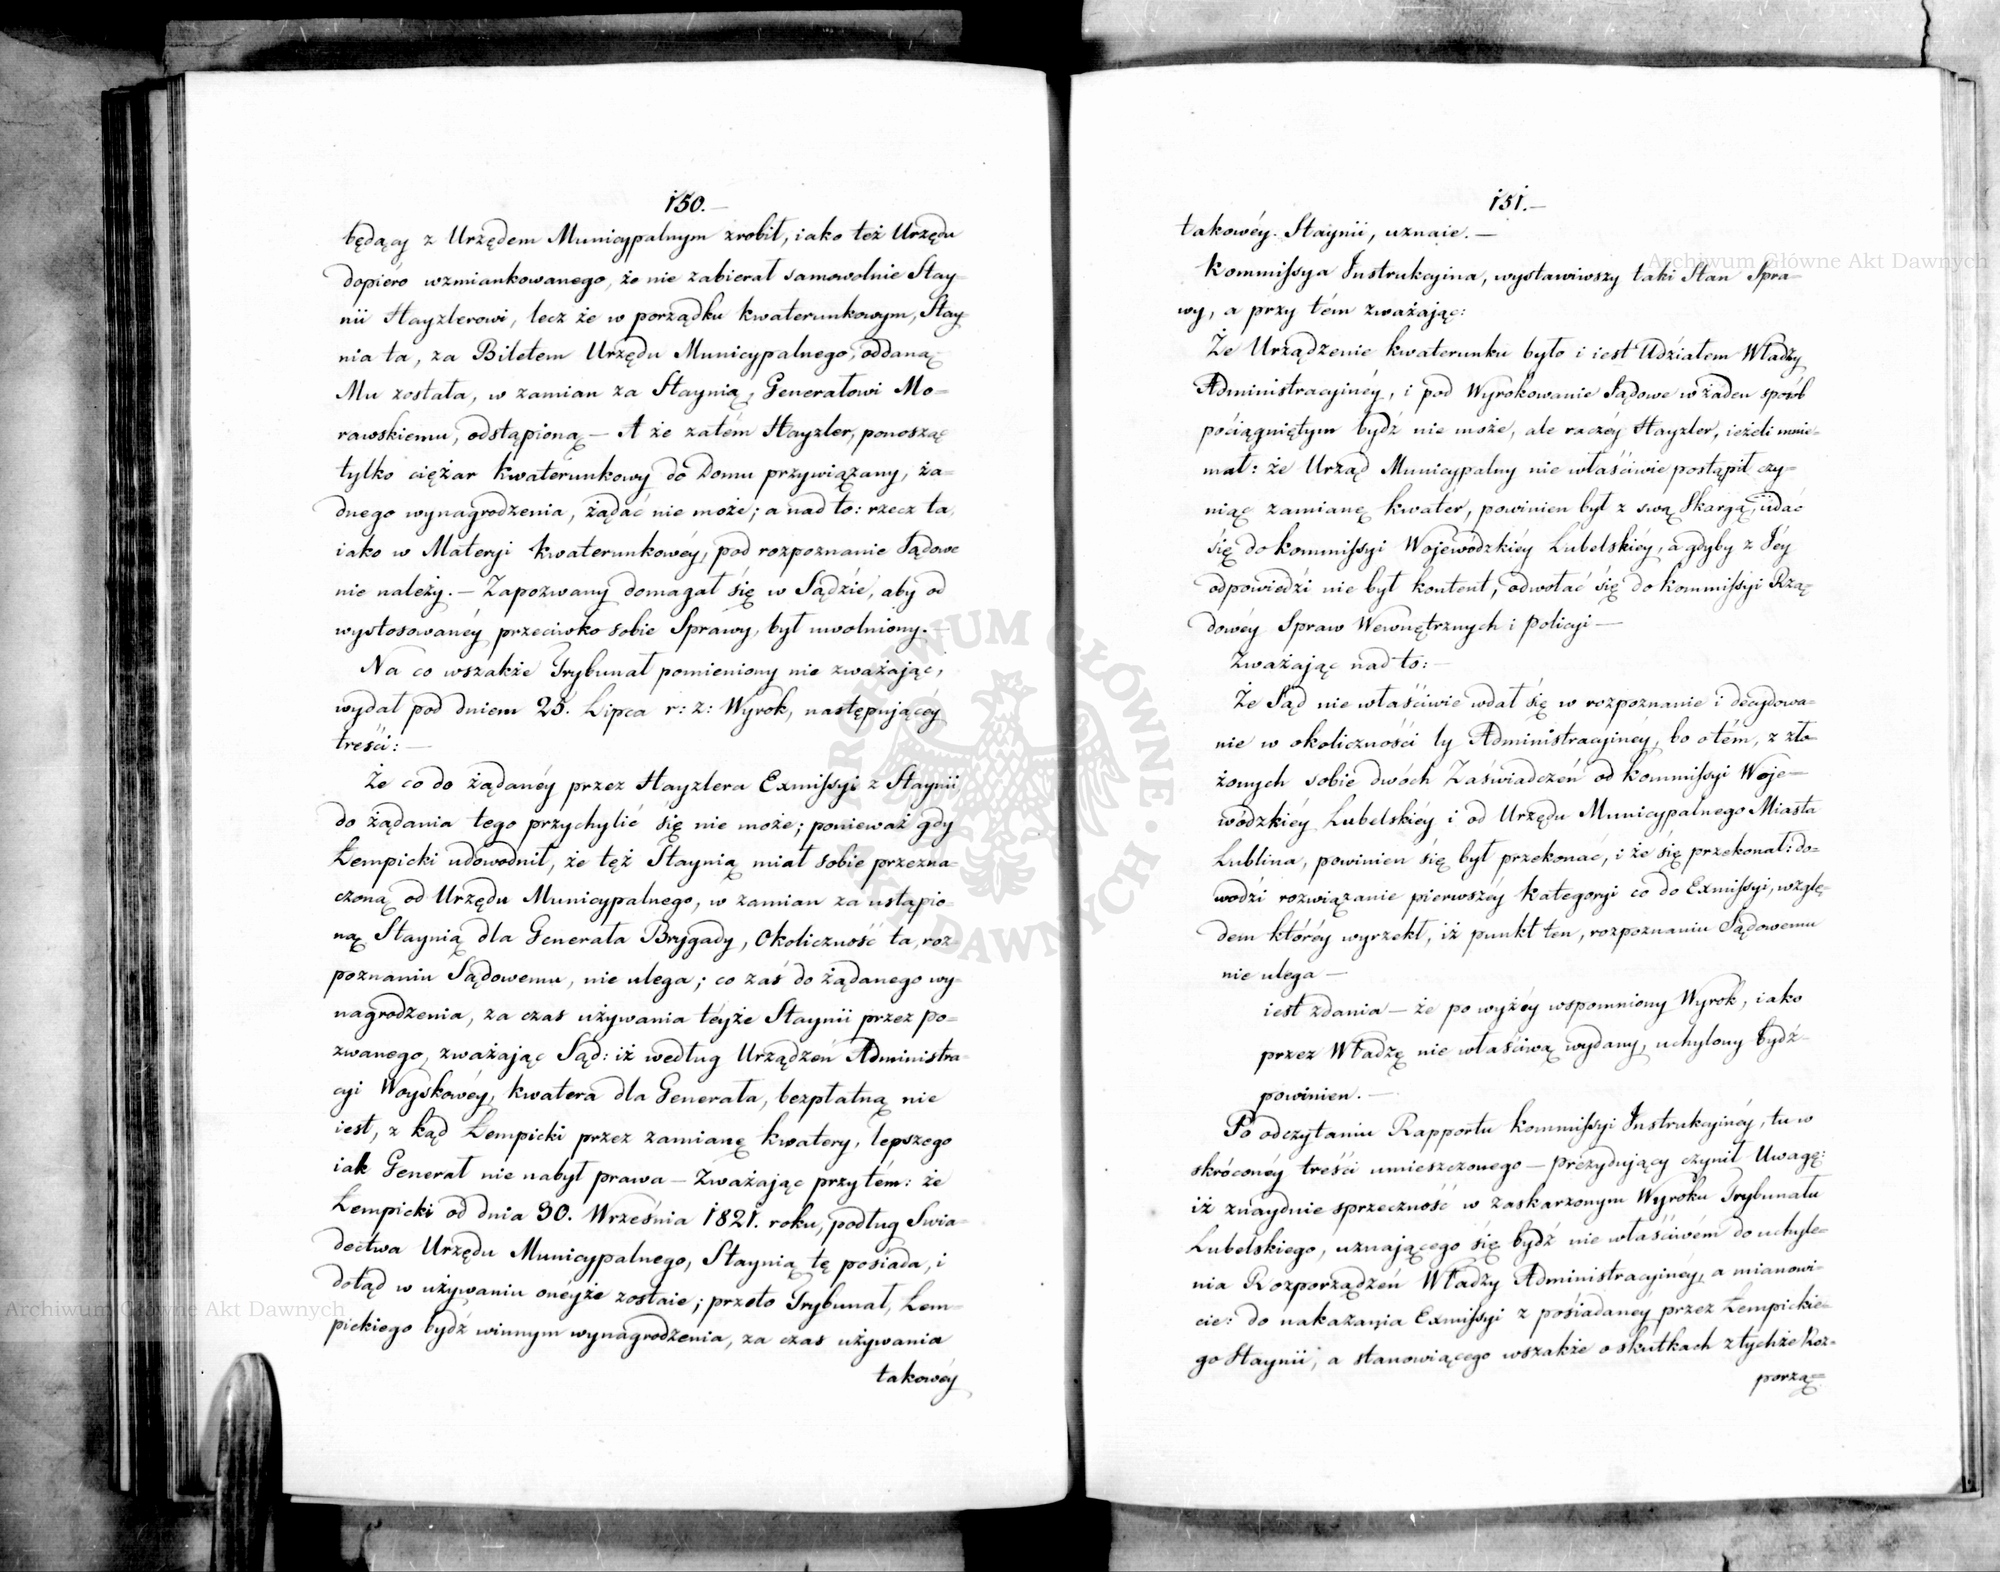 150.—
będący z Urzędem Municypalnym zrobił, iako też Urzędu
dopiéro wzmiankowanego, że nie zabierał samowolnie Stay=
nii Hayzlerowi, lecz że w porządku kwaterunkowym, Stay
nia ta, za Biletem Urzędu Municypalnego, oddaną
Mu została, w zamian za Staynią, Generałowi Mo=
rawskiemu, odstąpioną — A że zatém Hayzler, ponosząc
tylko ciężar kwaterunkowy do Domu przywiązany, ża=
dnego wynagrodzenia, żądać nie może; a nad to: rzecz ta,
iako w Materyi kwaterunkowéy, pod rozpoznanie Sądowe
nie należy. — Zapozwany domagał się w Sądzie, aby od
wystosowanéy przeciwko sobie Sprawy, był uwolniony. —
Na co wszakże Trybunał pomieniony nie zważając,
wydał pod dniem 25. Lipca r: z: Wyrok, następującéy
treści: —
Że co do żądanéy przez Hayzlera Exmissyi z Staynii
do żądania tego przychylić się nie może; ponieważ gdy
Łempicki udowodnił, że też Staynią miał sobie przezna=
czoną od Urzędu Municypalnego, w zamian za ustąpio=
ną Staynią dla Generała Brygady, Okoliczność ta, roz=
poznaniu Sądowemu, nie ulega; co zaś do żądanego wy=
nagrodzenia, za czas używania téyże Staynii przez po=
zwanego, zważając Sąd: iż według Urządzeń Administra=
cyi Woyskowéy, kwatera dla Generała, bezpłatną nie
iest, z kąd Łempicki przez zamianę kwatery, lepszego
iak Generał nie nabył prawa — Zważając przytém: że
Łempicki od dnia 30. Września 1821. roku, podług Świa=
dectwa Urzędu Municypalnego, Staynią tę posiada, i
dotąd w używaniu onéyże zostaie; przeto Trybunał, Łem=
pickiego bydź winnym wynagrodzenia, za czas używania
takowéy
151.—
takowéy Staynii, uznaie. —
Kommissya Instrukcyina, wystawiwszy taki Stan Spra=
wy, a przy tém zważając:
Że Urządzenie kwaterunku było i iest Udziałem Władzy
Administracyinéy, i pod Wyrokowanie Sądowe w żaden sposób
pociągniętym bydź nie może, ale raczéy Hayzler, ieżeli mnie=
mał: że Urząd Municypalny nie właściwie postąpił czy=
niąc zamianę kwater, powinien był z swą Skargą, udać
się do Kommissyi Wojewódzkiéy Lubelskiéy, a gdyby z Jéy
odpowiedzi nie był kontent, odwołać się do Kommissyi Rzą=
dowéy Spraw Wewnętrznych i Policyi —
Zważając nad to: —
Że Sąd nie właściwie wdał się w rozpoznanie i decydowa=
nie w okoliczności ty Administracyinéy, bo o tém, z zło=
żonych sobie dwóch Zaświadczeń od Kommissyi Woje=
wódzkiéy Lubelskiéy i od Urzędu Municypalnego Miasta
Lublina, powinien się był przekonać, i że się przekonał: do=
wodzi rozwiązanie pierwszéy kategoryi co do Exmissyi, wzglę=
dem któréy wyrzekł, iż punkt ten, rozpoznaniu Sądowemu
nie ulega —
iest zdania — że powyżéy wspomniony Wyrok, iako
przez Władzę nie właściwą wydany, uchylony bydź
powinien. —
Po odczytaniu Rapportu Kommissyi Instrukcyinéy, tu w
skróconéy treści umieszczonego — Prezydujący czynił Uwagę:
iż znaydnie sprzeczność w zaskarżonym Wyroku Trybunału
Lubelskiego, uznającego się bydź nie właściwém do uchyle=
nia Rozporządzeń Władzy Administracyinéy, a mianowi=
cie: do nakazania Exmissyi z posiadaney przez Łempickie=
go Staynii, a stanowiącego wszakże o skutkach z tychże Roz=
porzą=
Archiwum Główne Akt Dawnych
Archiwum Główne Akt Dawnych
ARCHIWUM GŁÓWNE AKT DAWNYCH